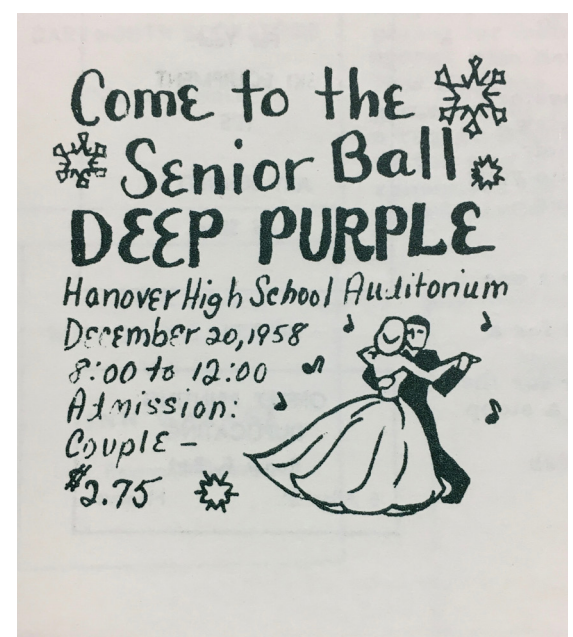 Come to the
Senior Ball
DEEP PURPLE
Hanover High School Auditorium
December 20, 1958
8:00 to 12:00
Admission:
Couple –
$2.75